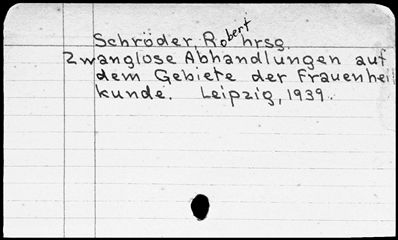 Schröder, Robert hrsg.
Zwanglose Abhandlungen auf
dem Gebiete der Frauenhei
kunde. Leipzig, 1939.